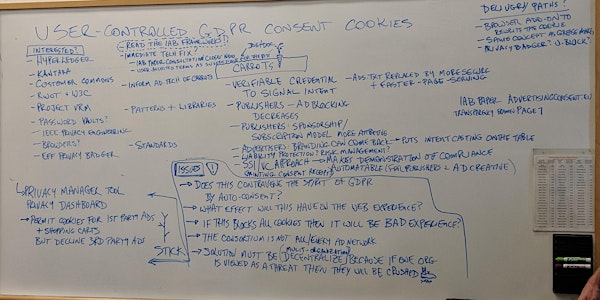 USER-CONTROLLED GDPR CONSENT COOKIES
INTERESTED?
- HYPERLEDGER
- KANTARA
- CUSTOMER COMMONS
- RWOT + W3C
- PROJECT VRM
- PASSWORD VAULTS?
- IEEE PRIVACY ENGINEERING
- BROWSERS?
- EFF PRIVACY BADGER
- READ THE IAB FRAMEWORK!
- IMEDIATE TECH FIX?
- IAB PAPER CONSULTATION CLOSES
- INFORM AD-TECH OF CARROTS
- PATTERNS + LIBRARIES
- STANDARDS
CARROTS
- VERIFIABLE CREDENTIAL
TO SIGNAL INTENT
- PUBLISHERS - AD BLOCKING
DECREASES
- PUBLISHERS - SPONSORSHIP/
SUBSCRIPTION MODEL MORE ATTRACTIVE
- ADVERTISERS: BRANDING CAN COME BACK
- LIABILITY PROTECTION? RISK MANAGEMENT?
- SSI/VC APROACH
- ADS.TXT REPLACED BY MORE SECURE
+ FASTER-PAGE-SERVING
PUTS INTENT CASTING ON THE TABLE
MAKES DEMONSTRATION OF COMPLIANCE
AUTOMATABLE (FOR PUBLISHER + AD CREATIVE)
DELIVERY PATHS?
- BROWSER ADD-ON TO
REWRITE THE COOKIE
- SAME CONCEPT AS
- PRIVACY BADGER? U-BLOCK?
IAB PAPER ADVERTISINGCONSENT.EU
TRANSPARENCY PAGE 7
ISSUES !
- DOES THIS CONTRAVENE THE SPIRIT OF GDPR
BY AUTO-CONSENT?
- WHAT EFFECT WILL THIS HAVE ON THE WEB EXPERIENCE?
- IF THIS BLOCKS ALL COOKIES THEN IT WILL BE BAD EXPERIENCE?
- THE CONSORTIUM IS NOT ALL/EVERY AD NETWORK
- SOLUTION MUST BE (MULTI-ORGANIZATION) DECENTRALIZED BECAUSE IF ONE ORG
IS VIEWED AS A THREAT THEN THEY WILL BE CRUSHED
STICK
PRIVACY MANAGER TOOL
PRIVACY DASHBOARD
- PERMIT COOKIES FOR 1ST PARTY ADS
+ SHOPPING CARTS
BUT DECLINE 3RD PARTY ADS